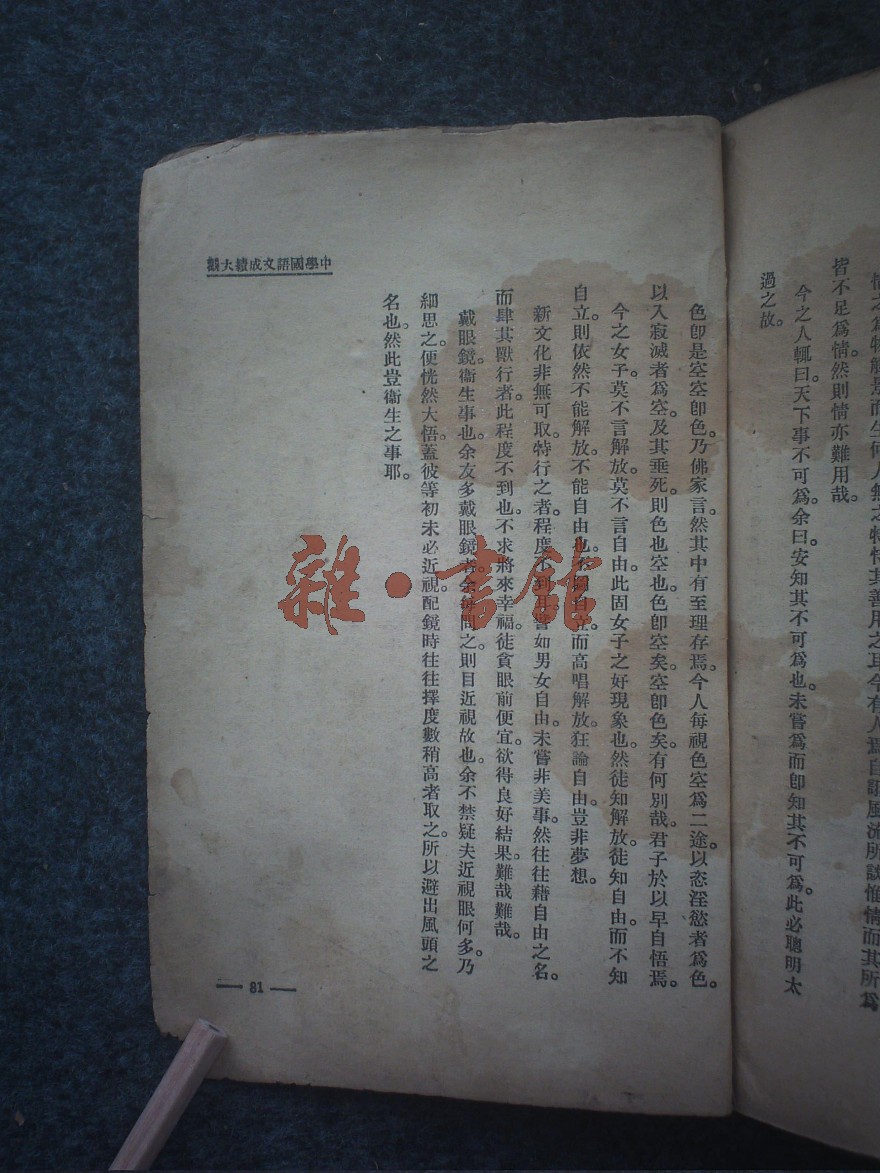 情之爲物觸景而生何人無之特恃其善用之耳今有人焉自詡風流所談惟情而其所爲
皆不足爲情然則情亦難用哉。
今之人輒曰天下事不可爲。余曰安知其不可爲也未嘗爲而卽知其不可爲。此必聰明太
過之故。
中學國語文成績大觀
色卽是空空卽色。乃佛家言然其中有至理存焉。今人每視色空爲二途以恣淫慾者爲色。
以入寂滅者爲空。及其垂死則色也空也色卽空矣。空卽色矣。有何別哉。君子於以早自悟焉。
今之女子莫不言解放。莫不言自由。此固女子之好現象也。然徒知解放。徒知自由。而不知
自立。則依然不能解放。不能自由也。不圖自立。而高唱解放。狂論自由。豈非夢想。
新文化非無可取特行之者。程度不到耳。嘗如男女自由。未嘗非美事。然往往藉自由之名。
而肆其獸行者。此程度不到也。不求將來幸福。徒貪眼前便宜。欲得良好結果。難哉難哉。
戴眼鏡。衞生事也。余友多戴眼鏡者。余每問之。則目近視故也。余不禁疑夫近視眼何多。乃
細思之。便恍然大悟。蓋彼等初未必近視。配鏡時往往擇度數稍高者取之。所以避出風頭之
名也。然此豈衞生之事耶。
— 81 —
雜·書館